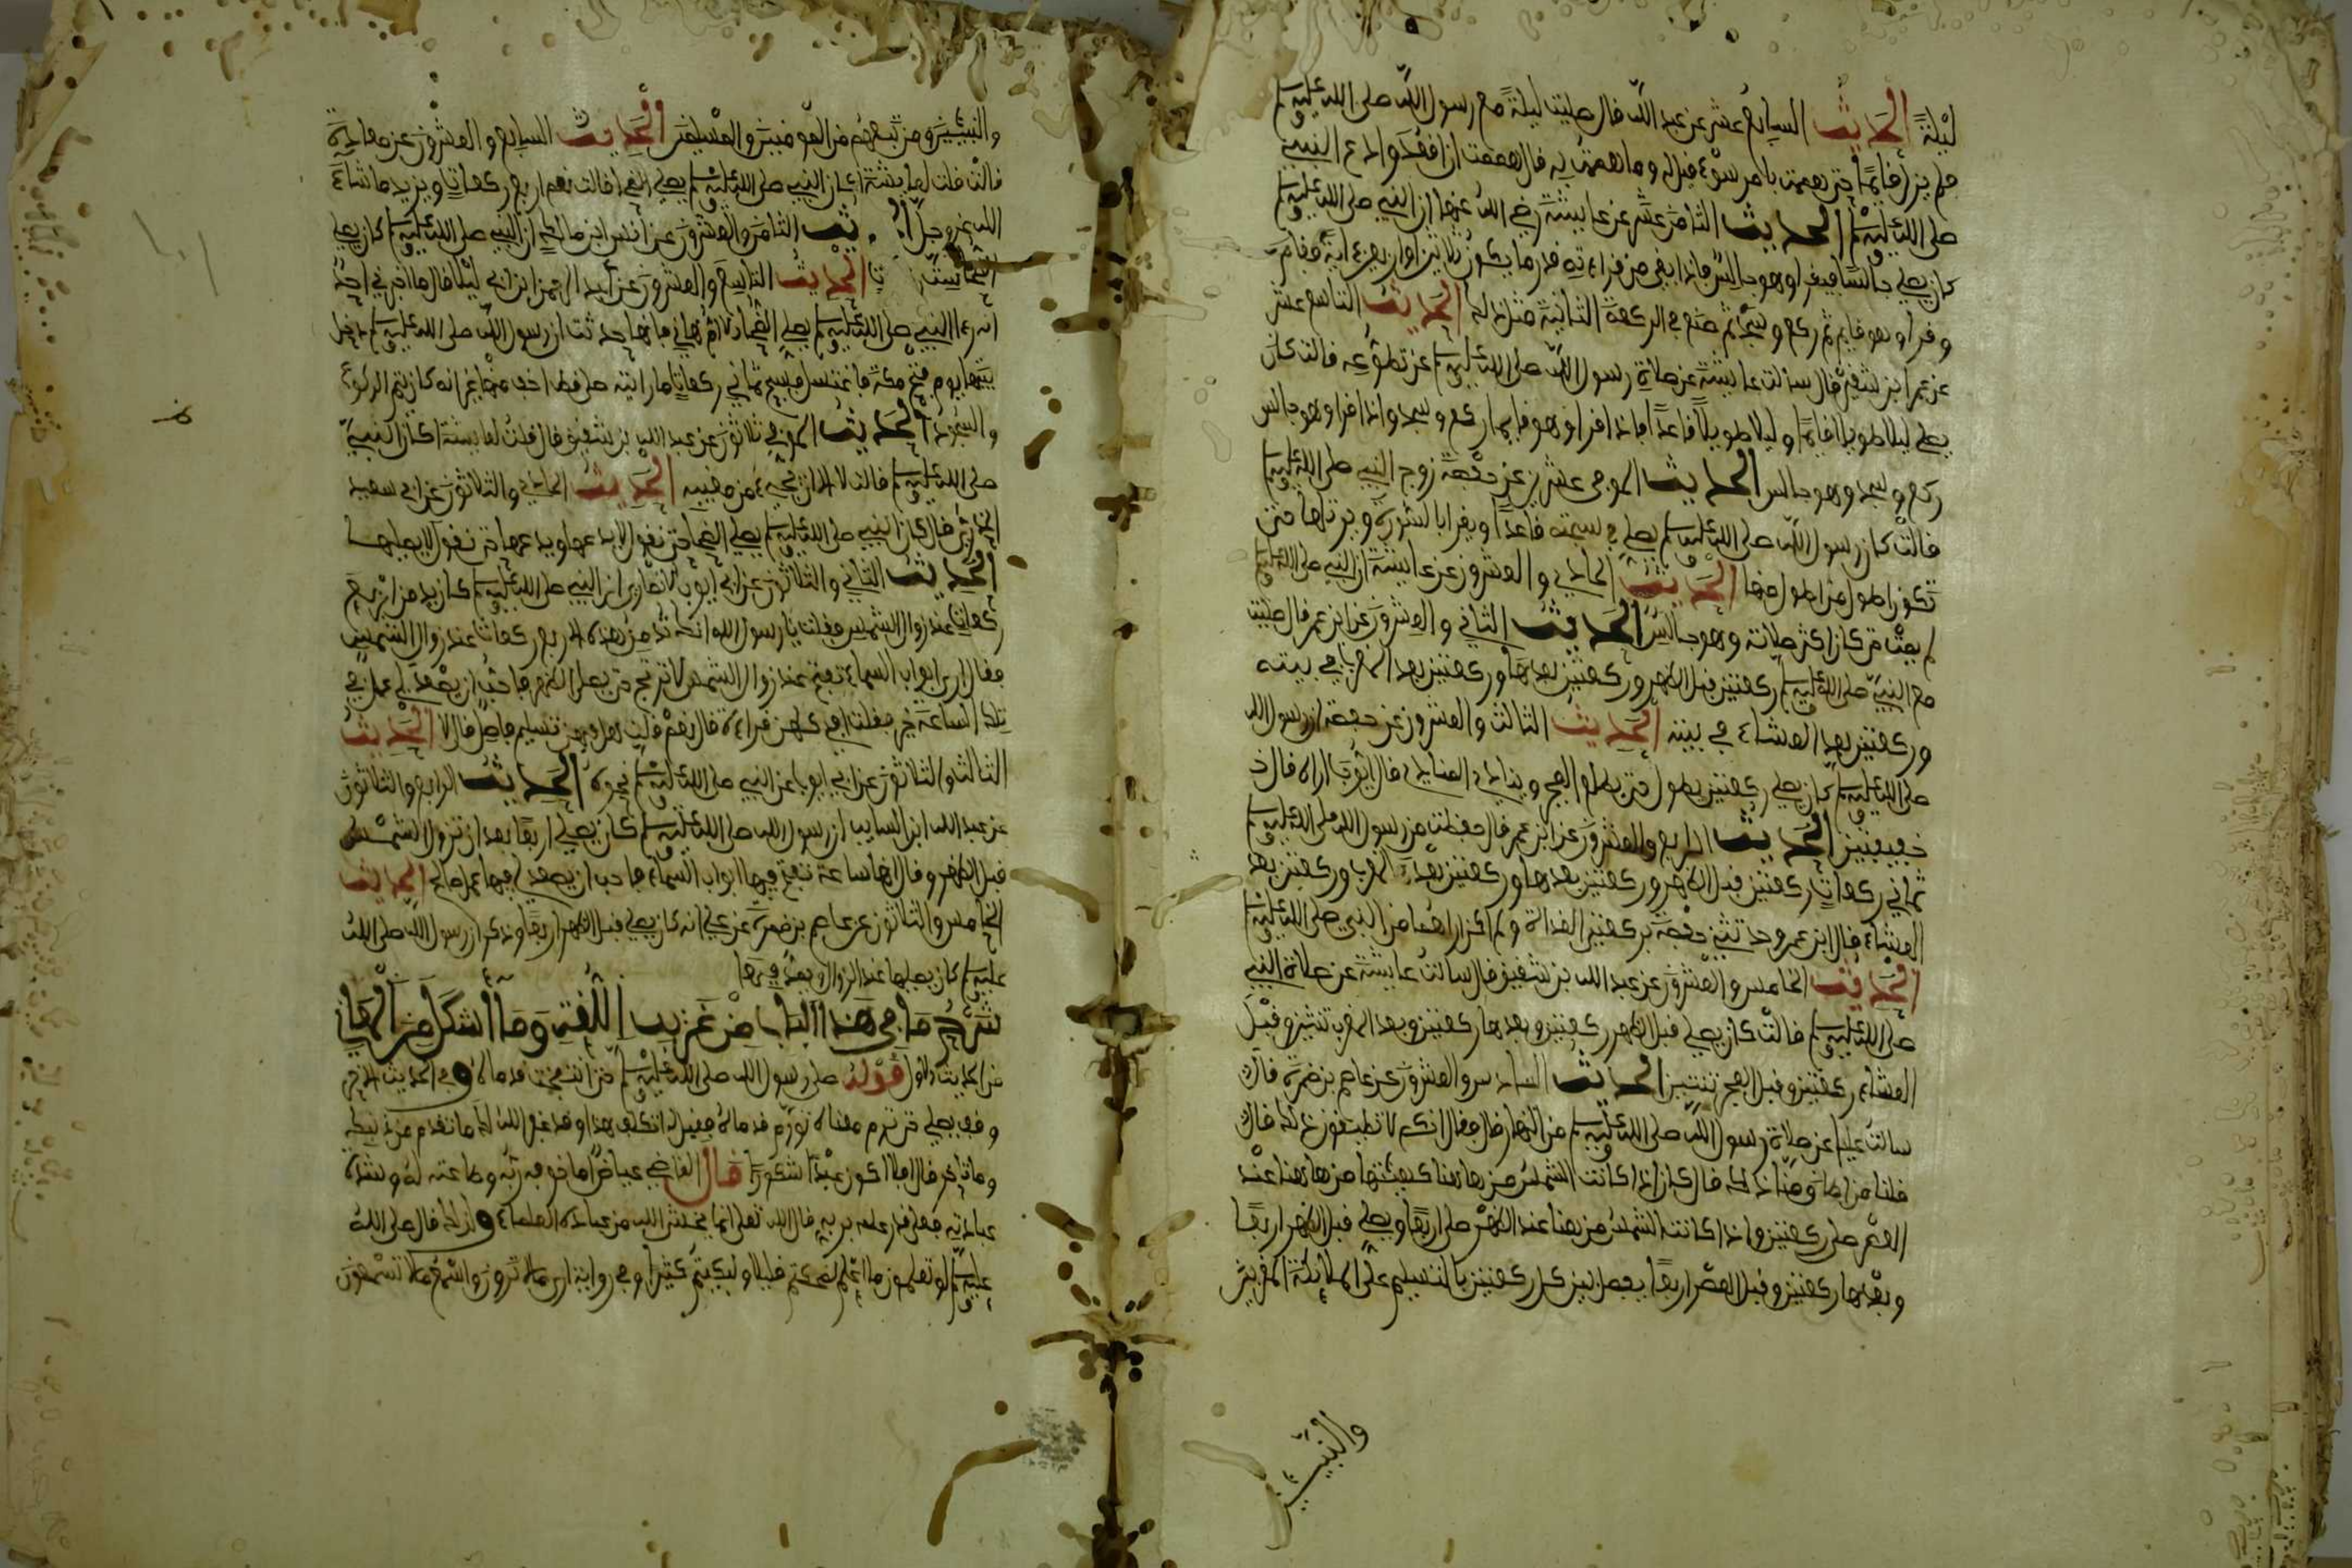 ليلة الحديث السابع عشر عن عبد الله قال صليت ليلة مع رسول الله صلى الله عليه وسلم
فلم يزل قائما حتى هممت بامر سوء قيل له وما هممت به قال هممت ان اقعد وادع النبي
صلى الله عليه وسلم الحديث الثامن عشر عن عايشة رضي الله عنها ان النبي صلى الله عليه وسلم
كان يصلي جالسا فيقرا وهو جالس فاذا بقي من قراءته قدر ما يكون ثلاثين او اربعين ءاية قام
وقرا وهو قايم ثم ركع وسجد ثم صنع في الركعة الثانية مثل ذلك الحديث التاسع عشر
عن عبد الله بن شقيق قال سالت عايشة عن صلاة رسول الله صلى الله عليه وسلم عن تطوعه فالت كان
يصلي ليلا طويلا قايما وليلا طويلا قاعدا فاذا قرا وهو قايم ركع وسجد واذا قرا وهو جالس
ركع وسجد وهو جالس الحديث الموفي عشرين عن حفصة زوج النبي صلى الله عليه وسلم
قالت كان رسول الله صلى الله عليه وسلم يصلي في سبحته قاعدا ويقرا بالسورة ويرتلها حتى
تكون اطول من اطول منها الحديث الحادي والعشرون عن عايشة ان النبي صلى الله عليه وسلم
لم يمت حتى كان اكثر صلاته وهو جالس الحديث الثاني والعشرون عن ابن عمر قال صليت
مع النبي صلى الله عليه وسلم ركعتين قبل الظهر وركعتين بعدها وركعتين بعد المغرب في بيته
وركعتين بعد العشاء في بيته الحديث الثالث والعشرون عن حفصة ان رسول الله
صلى الله عليه وسلم كان يصلي ركعتين حتى يطلع الفجر وينادي المنادي قال ايوب اراه قال
خفيفتين الحديث الرابع والعشرون عن ابن عمر قال حفظت من رسول الله صلى الله عليه وسلم
ثماني ركعات ركعتين قبل الظهر وركعتين بعدها وركعتين بعد المغرب وركعتين بعد
العشاء قال ابن عمر وحدثتني حفصة بركعتي الغداة ولم اكن اراهما من النبي صلى الله عليه وسلم
الحديث الخامس والعشرون عن عبد الله بن شقيق قال سالت عايشة عن صلاة النبي
صلى الله عليه وسلم قالت كان يصلي قبل الظهر ركعتين وبعدها ركعتين وبعد المغرب ثنتين وقبل
العشاء ركعتين وقبل الفجر ثنتين الحديث السادس والعشرون عن عاصم بن ضمرة قال
سالت عليا عن صلاة رسول الله صلى الله عليه وسلم من النهار قال فقال انكم لا تطيقون ذلك قال
قلنا من اطاق منا ذلك قال كان اذا كانت الشمس من هاهنا كهيئتها من هاهنا عند
العصر صلى ركعتين واذا كانت الشمس من هنا عند الظهر صلى اربعا ويصلي قبل الظهر اربعا
وبعدها ركعتين وقبل العصر اربعا يفصل بين كل ركعتين بالتسليم على الملائكة المقربين
والنبيين
والنبيئين ومن تبعهم من المومنين والمسلمين الحديث السابع والعشرون عن معاذة
قالت قلت لعايشة اكان النبي صلى الله عليه وسلم يصلي الضحى قالت نعم اربع ركعات ويزيد ما شاء
الله عز وجل الثامن والعشرون عن انس ابن مالك ان النبي صلى الله عليه وسلم كان يصلي
الضحى ست الحديث التاسع والعشرون عن عبد الرحمن ابن ابي ليلى قال ما اخبرني احد
انه رءا النبي صلى الله عليه وسلم يصلي الضحى الا ام هاني فانها حدثت ان رسول الله صلى الله عليه وسلم دخل
بيتها يوم فتح مكة فاغتسل فسبح ثماني ركعات ما رايته صلى قط اخف منها غير انه كان يتم الركوع
والسجود الحديث الموفي ثلاثون عن عبد الله بن شقيق قال قلت لعايشة اكان النبي
صلى الله عليه وسلم قالت لا الا ان يجيء من مغيبه الحديث الحادي والثلاثون عن ابي سعيد
الخدري قال كان النبي صلى الله عليه وسلم يصلي الضحى حتى نقول لا يدعها ويدعها حتى نقول لا يصليها
الحديث الثاني والثلاثون عن ابي ايوب الانصاري ان النبي صلى الله عليه وسلم كان يدمن اربع
ركعات عند زوال الشمس فقلت يا رسول الله انك تدمن هذه الاربع ركعات عند زوال الشمس
فقال ان ابواب السماء تفتح عند زوال الشمس لا ترتج حتى يصلى الظهر فاحب ان يصعد لي عمل في
تلك الساعة خير فقلت افي كلهن قراءة قال نعم قلت هل فيهن تسليم فاصل قال لا الحديث
الثالث والثلاثون عن ابي ايوب عن النبي صلى الله عليه وسلم نحوه الحديث الرابع والثلاثون
عن عبد الله ابن السايب ان رسول الله صلى الله عليه وسلم كان يصلي اربعا بعد ان تزول الشمس
قبل الظهر وقال انها ساعة تفتح فيها ابواب السماء فاحب ان يصعد لي فيها عمل صالح الحديث
الخامس والثلاثون عن عاصم بن ضمرة عن علي انه كان يصلي قبل الظهر اربعا وذكر ان رسول الله صلى الله
عليه وسلم كان يصليها عند الزوال ويمد فيها
شرح ما في هذا الباب من غريب اللغة وما اشكل من المعاني
من الحديث الاول قوله صلى رسول الله صلى الله عليه وسلم حتى انتفخت قدماه وفي الحديث الاخر
وقف يصلي حتى ترم معناه تورم قدماه فقيل له اتكلف هذا وقد غفر الله لك ما تقدم من ذنبك
وما تاخر قال افلا اكون عبدا شكورا قال القاضي عياض اما خوفه ربه وطاعته له وشدة
عبادته فعلى قدر علمه بربه قال الله تعلى انما يخشى الله من عباده العلماء ولذلك قال صلى الله
عليه وسلم لو تعلمون ما اعلم لضحكتم قليلا ولبكيتم كثيرا وفي رواية ارى ما لا ترون واسمع ما لا تسمعون